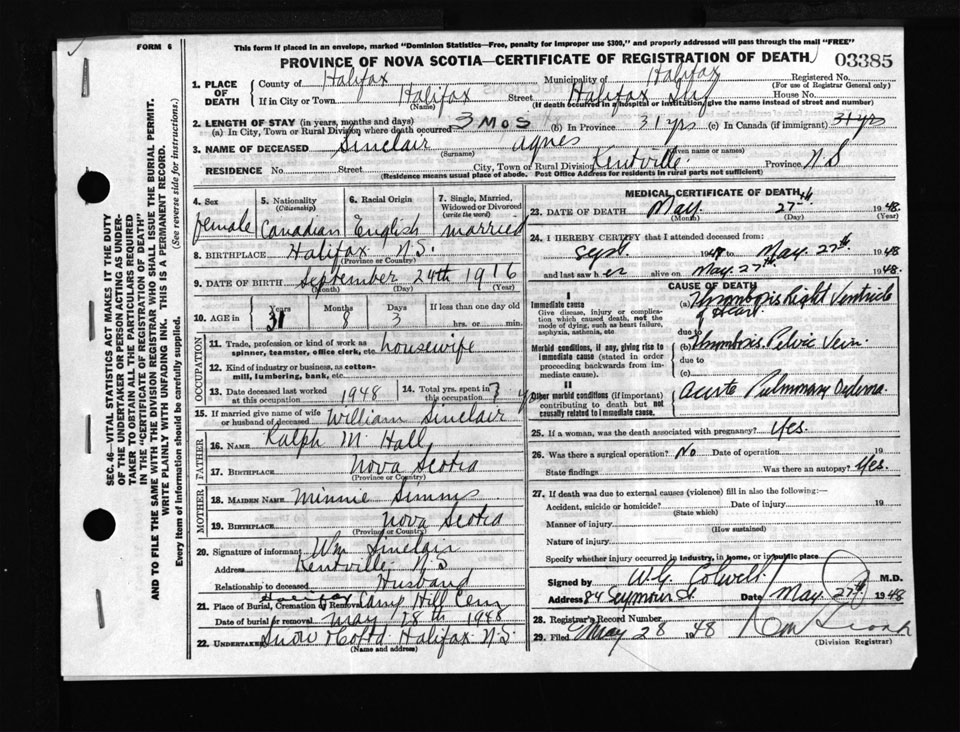 FORM 6
This form if placed in an envelope, marked "Dominion Statistics—Free, penalty for improper use $300," and properly addressed will pass through the mail "FREE"
PROVINCE OF NOVA SCOTIA—CERTIFICATE OF REGISTRATION OF DEATH
03385
1. PLACE OF DEATH
County of Halifax Municipality of Halifax Registered No.
(For use of Registrar General only)
If in City or Town Halifax Street Halifax Inf House No.
(Name) (If death occurred in a hospital or institution, give the name instead of street and number)
2. LENGTH OF STAY (in years, months and days)
(a) In City, Town or Rural Division where death occurred 3 mos (b) In Province 31 yrs (c) In Canada (if immigrant) 31 yrs
3. NAME OF DECEASED Sinclair Agnes
(Surname) (Given name or names)
RESIDENCE No. Street City, Town or Rural Division Kentville Province N S
(Residence means usual place of abode. Post Office Address for residents in rural parts not sufficient)
4. Sex female
5. Nationality (Citizenship) Canadian
6. Racial Origin English
7. Single, Married, Widowed or Divorced (write the word) married
8. BIRTHPLACE Halifax N.S.
(Province or Country)
9. DATE OF BIRTH September 24th 1916
(Month) (Day) (Year)
10. AGE in Years Months Days If less than one day
31 8 3 hrs. or min.
OCCUPATION
11. Trade, profession or kind of work as spinner, teamster, office clerk, etc. housewife
12. Kind of industry or business, as cotton-mill, lumbering, bank, etc.
13. Date deceased last worked at this occupation 1948
14. Total yrs. spent in this occupation 7 yr
15. If married give name of wife or husband of deceased William Sinclair
FATHER
16. NAME Ralph M. Hall
17. BIRTHPLACE Nova Scotia
(Province or Country)
MOTHER
18. MAIDEN NAME Minnie Simms
19. BIRTHPLACE Nova Scotia
(Province or Country)
20. Signature of informant Wm Sinclair
Address Kentville N S
Relationship to deceased Husband
21. Place of Burial, Cremation or Removal Halifax Camp Hill Cem
Date of burial or removal May 28th 1948
22. Undertaker Snow & Co Ltd. Halifax N.S.
(Name and address)
MEDICAL CERTIFICATE OF DEATH
23. DATE OF DEATH May 27th 1948
(Month) (Day) (Year)
24. I HEREBY CERTIFY that I attended deceased from
Sept 1947 to May 27th 1948
and last saw h er alive on May 27th 1948.
CAUSE OF DEATH
I
Immediate cause
Give disease, injury or complication which caused death, not the mode of dying, such as heart failure, asphyxia, asthenia, etc
(a) Thrombosis Right Ventricle of Heart
due to
Morbid conditions, if any, giving rise to immediate cause (stated in order proceeding backwards from immediate cause).
(b) Thrombosis Pelvic Vein
due to
(c)
II
Other morbid conditions (if important) contributing to death but not causally related to immediate cause.
Acute Pulmonary Oedema
25. If a woman, was the death associated with pregnancy? Yes.
26. Was there a surgical operation? No Date of operation 19
State findings Was there an autopsy? Yes.
27. If death was due to external causes (violence) fill in also the following:—
Accident, suicide or homicide? Date of injury 19
(State which)
Manner of injury
(How sustained)
Nature of injury
Specify whether injury occurred in industry, in home, or in public place
Signed by W. G. Colwell M.D.
Address 84 Seymour St. Date May 27th 1948
28. Registrar's Record Number
29. Filed May 28 1948
(Division Registrar)
SEC. 46—VITAL STATISTICS ACT MAKES IT THE DUTY
OF THE UNDERTAKER OR PERSON ACTING AS UNDER-
TAKER TO OBTAIN ALL THE PARTICULARS REQUIRED
IN THE "CERTIFICATE OF REGISTRATION OF DEATH"
AND TO FILE THE SAME WITH THE DIVISION REGISTRAR WHO SHALL ISSUE THE BURIAL PERMIT.
WRITE PLAINLY WITH UNFADING INK. THIS IS A PERMANENT RECORD.
Every item of information should be carefully supplied. (See reverse side for instructions.)